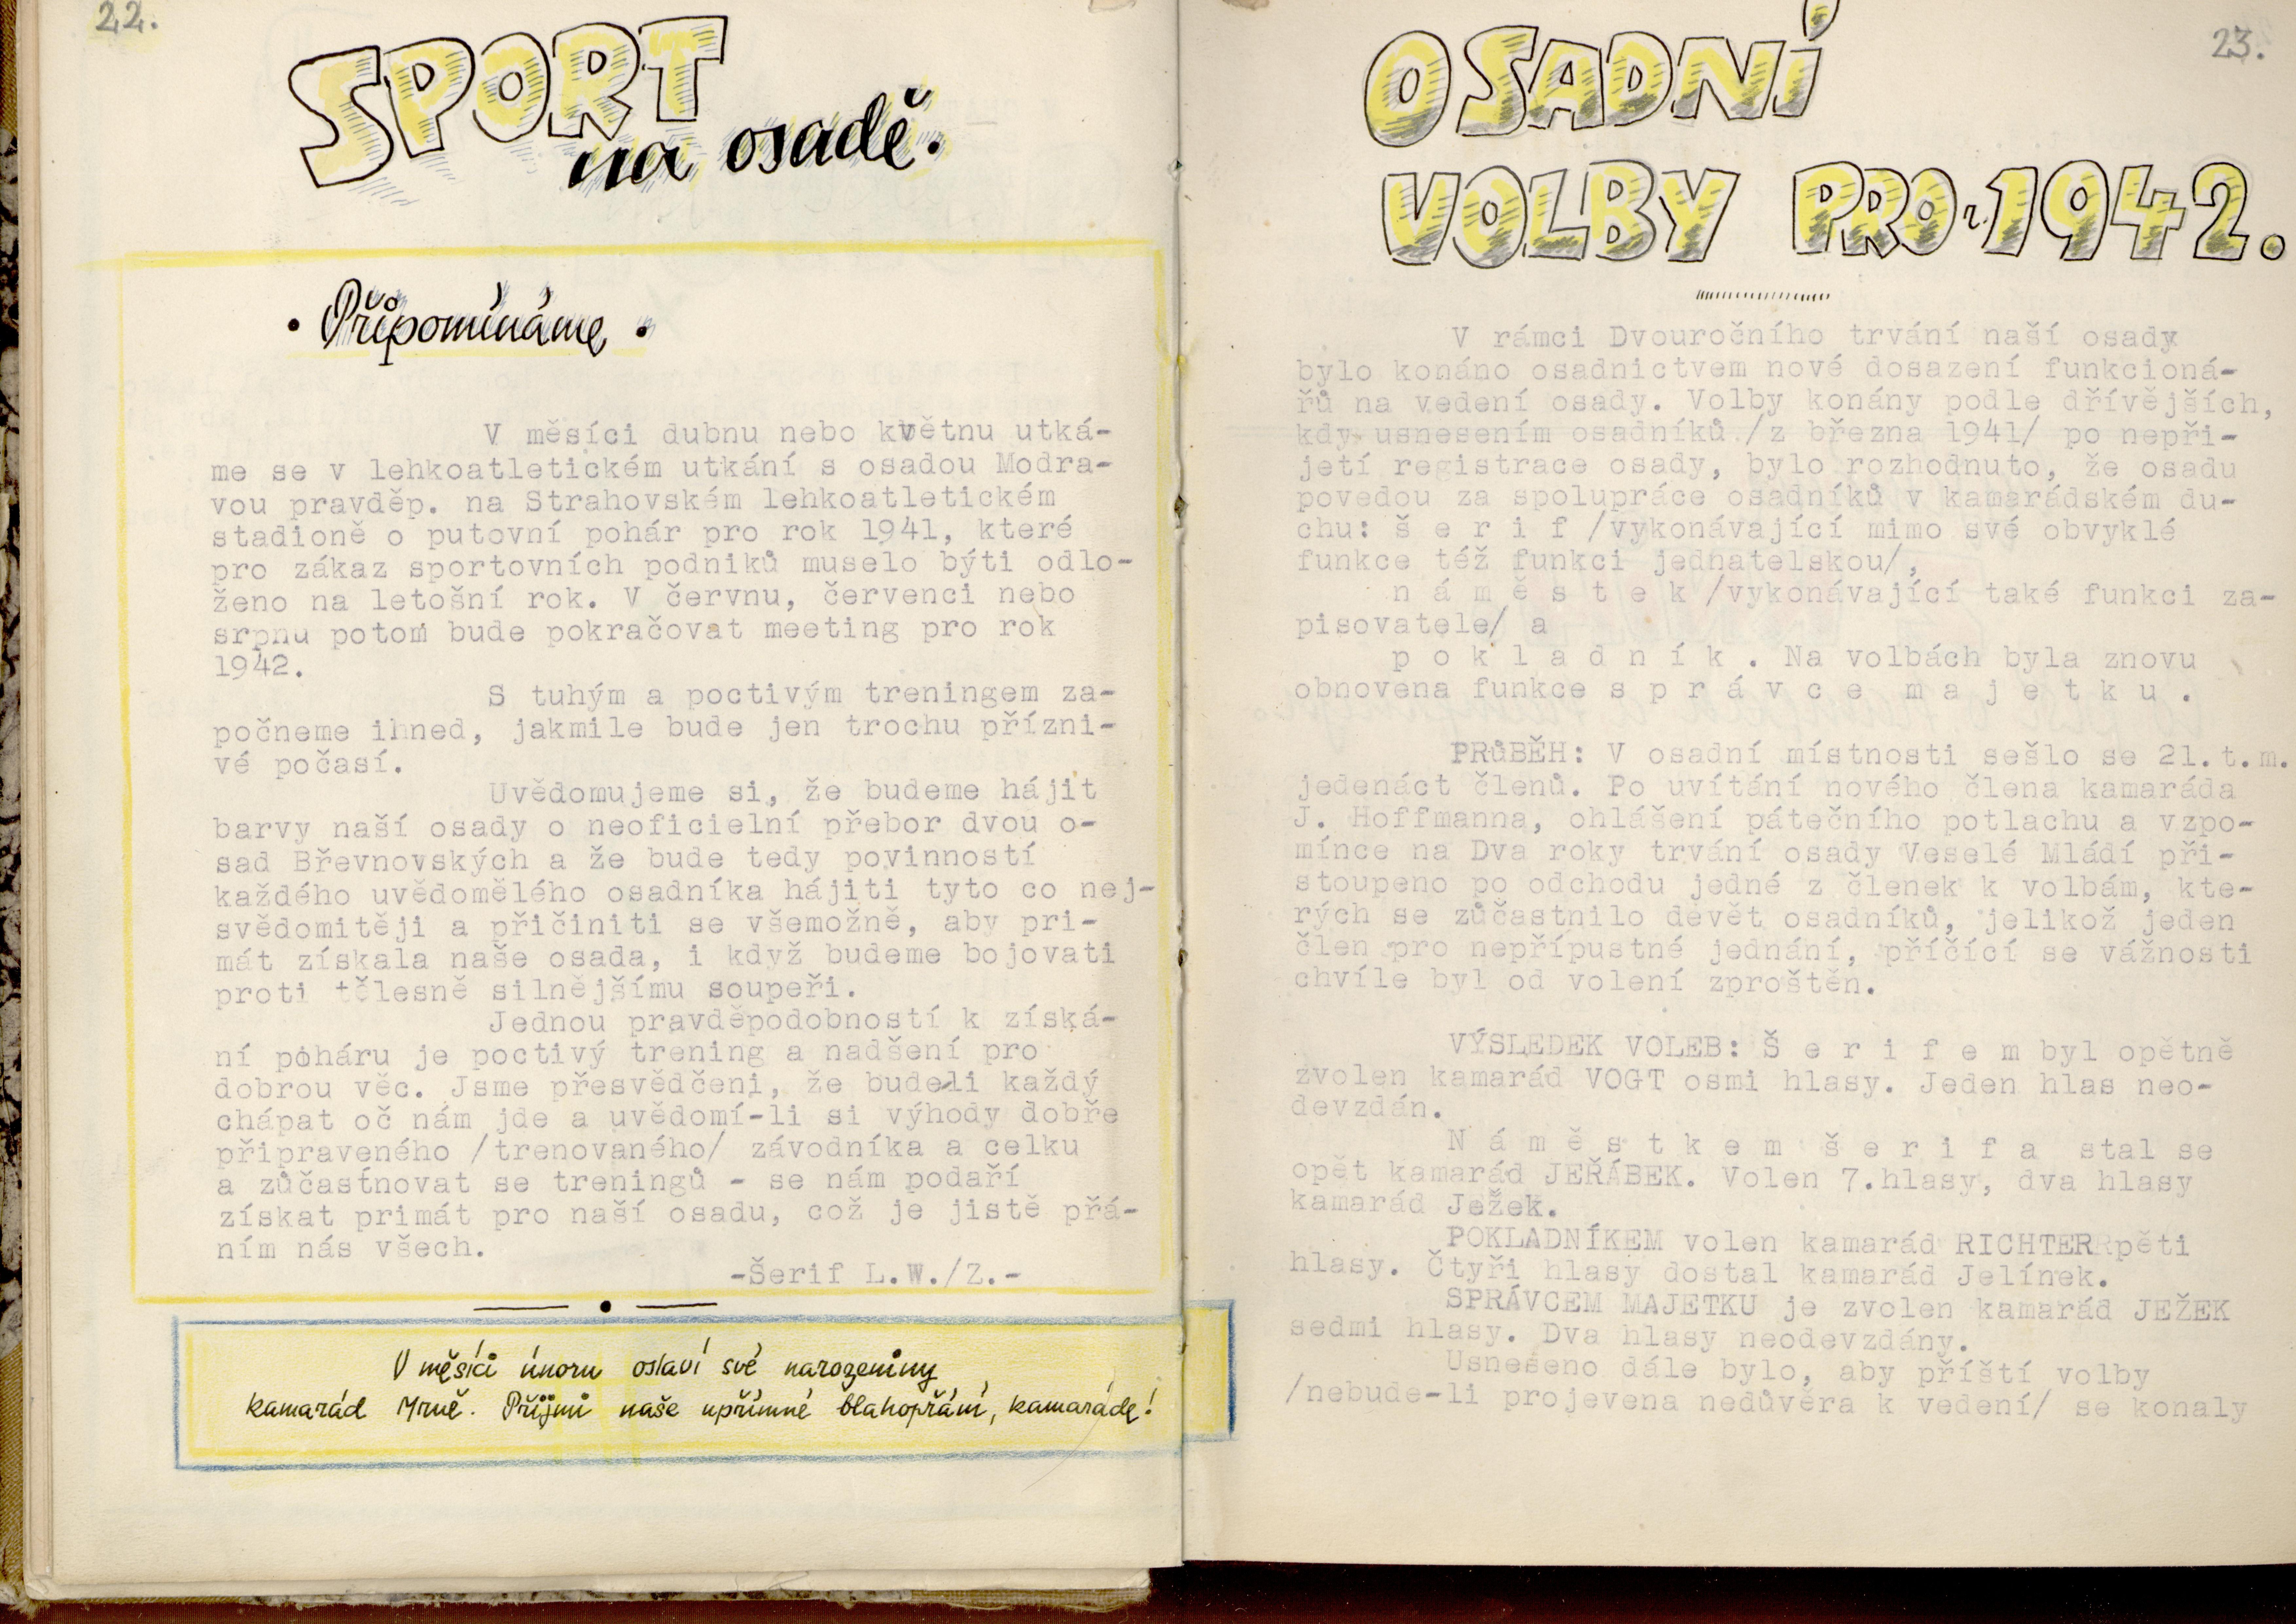 22.
SPORT
na osadě.
• Připomínáme •
V měsíci dubnu nebo květnu utká-
me se v lehkoatletickém utkání s osadou Modra-
vou pravděp. na Strahovském lehkoatletickém
stadioně o putovní pohár pro rok 1941, které
pro zákaz sportovních podniků muselo býti odlo-
ženo na letošní rok. V červnu, červenci nebo
srpnu potom bude pokračovat meeting pro rok
1942.
S tuhým a poctivým treningem za-
počneme ihned, jakmile bude jen trochu přízni-
vé počasí.
Uvědomujeme si, že budeme hájit
barvy naší osady o neoficielní přebor dvou o-
sad Břevnovských a že bude tedy povinností
každého uvědomělého osadníka hájiti tyto co nej-
svědomitěji a přičiniti se všemožně, aby pri-
mát získala naše osada, i když budeme bojovati
proti tělesně silnějšímu soupeři.
Jednou pravděpodobností k získá-
ní poháru je poctivý trening a nadšení pro
dobrou věc. Jsme přesvědčeni, že bude-li každý
chápat oč nám jde a uvědomí-li si výhody dobře
připraveného /trenovaného/ závodníka a celku
a zůčastnovat se treningů - se nám podaří
získat primát pro naší osadu, což je jistě přá-
ním nás všech.
-Šerif L.W./Z.-
V měsíci únoru oslaví své narozeniny
kamarád Mrně. Přijmi naše upřímné blahopřání, kamaráde!
23.
OSADNÍ
VOLBY PRO r. 1942.
V rámci Dvouročního trvání naší osady
bylo konáno osadnictvem nové dosazení funkcioná-
řů na vedení osady. Volby konány podle dřívějších,
kdy usnesením osadníků /z března 1941/ po nepři-
jetí registrace osady, bylo rozhodnuto, že osadu
povedou za spolupráce osadníků v kamarádském du-
chu: š e r i f /vykonávající mimo své obvyklé
funkce též funkci jednatelskou/,
n á m ě s t e k /vykonávající také funkci za-
pisovatele/ a
p o k l a d n í k . Na volbách byla znovu
obnovena funkce s p r á v c e m a j e t k u .
PRůBĚH: V osadní místnosti sešlo se 21.t.m.
jedenáct členů. Po uvítání nového člena kamaráda
J. Hoffmanna, ohlášení pátečního potlachu a vzpo-
mínce na Dva roky trvání osady Veselé Mládí při-
stoupeno po odchodu jedné z členek k volbám, kte-
rých se zůčastnilo devět osadníků, jelikož jeden
člen pro nepřípustné jednání, příčící se vážnosti
chvíle byl od volení zproštěn.
VÝSLEDEK VOLEB: Š e r i f e m byl opětně
zvolen kamarád VOGT osmi hlasy. Jeden hlas neo-
devzdán.
N á m ě s t k e m š e r i f a stal se
opět kamarád JEŘÁBEK. Volen 7.hlasy, dva hlasy
kamarád Ježek.
POKLADNÍKEM volen kamarád RICHTER pěti
hlasy. Čtyři hlasy dostal kamarád Jelínek.
SPRÁVCEM MAJETKU je zvolen kamarád JEŽEK
sedmi hlasy. Dva hlasy neodevzdány.
Usneseno dále bylo, aby příští volby
/nebude-li projevena nedůvěra k vedení/ se konaly